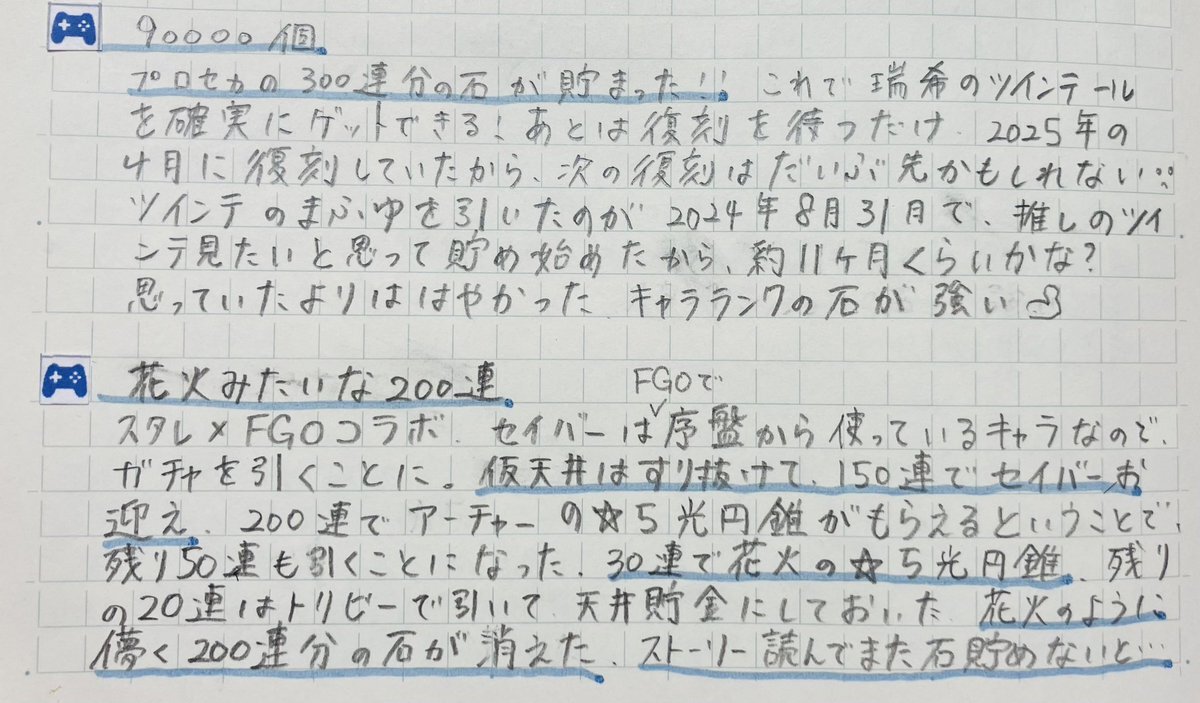 90000個
プロセカの300連分の石が貯まった!! これで瑞希のツインテール
を確実にゲットできる!あとは復刻を待つだけ. 2025年の
4月に復刻していたから、次の復刻はだいぶ先かもしれない…
ツインテのまふゆを引いたのが2024年8月31日で、推しのツイ
ンテ見たいと思って貯め始めたから、約11ヶ月くらいかな?
思っていたよりははやかった キャラランクの石が強い
花火みたいな200連
スタレ×FGOコラボ. セイバーはFGOで序盤から使っているキャラなので、
ガチャを引くことに。仮天井はすり抜けて、150連でセイバーお
迎え. 200連でアーチャーの☆5光円錐がもらえるということで、
残り50連も引くことになった. 30連で花火の☆5光円錐. 残り
の20連はトリビーで引いて、天井貯金にしておいた. 花火のように
儚く200連分の石が消えた. ストーリー読んでまた石貯めないと…